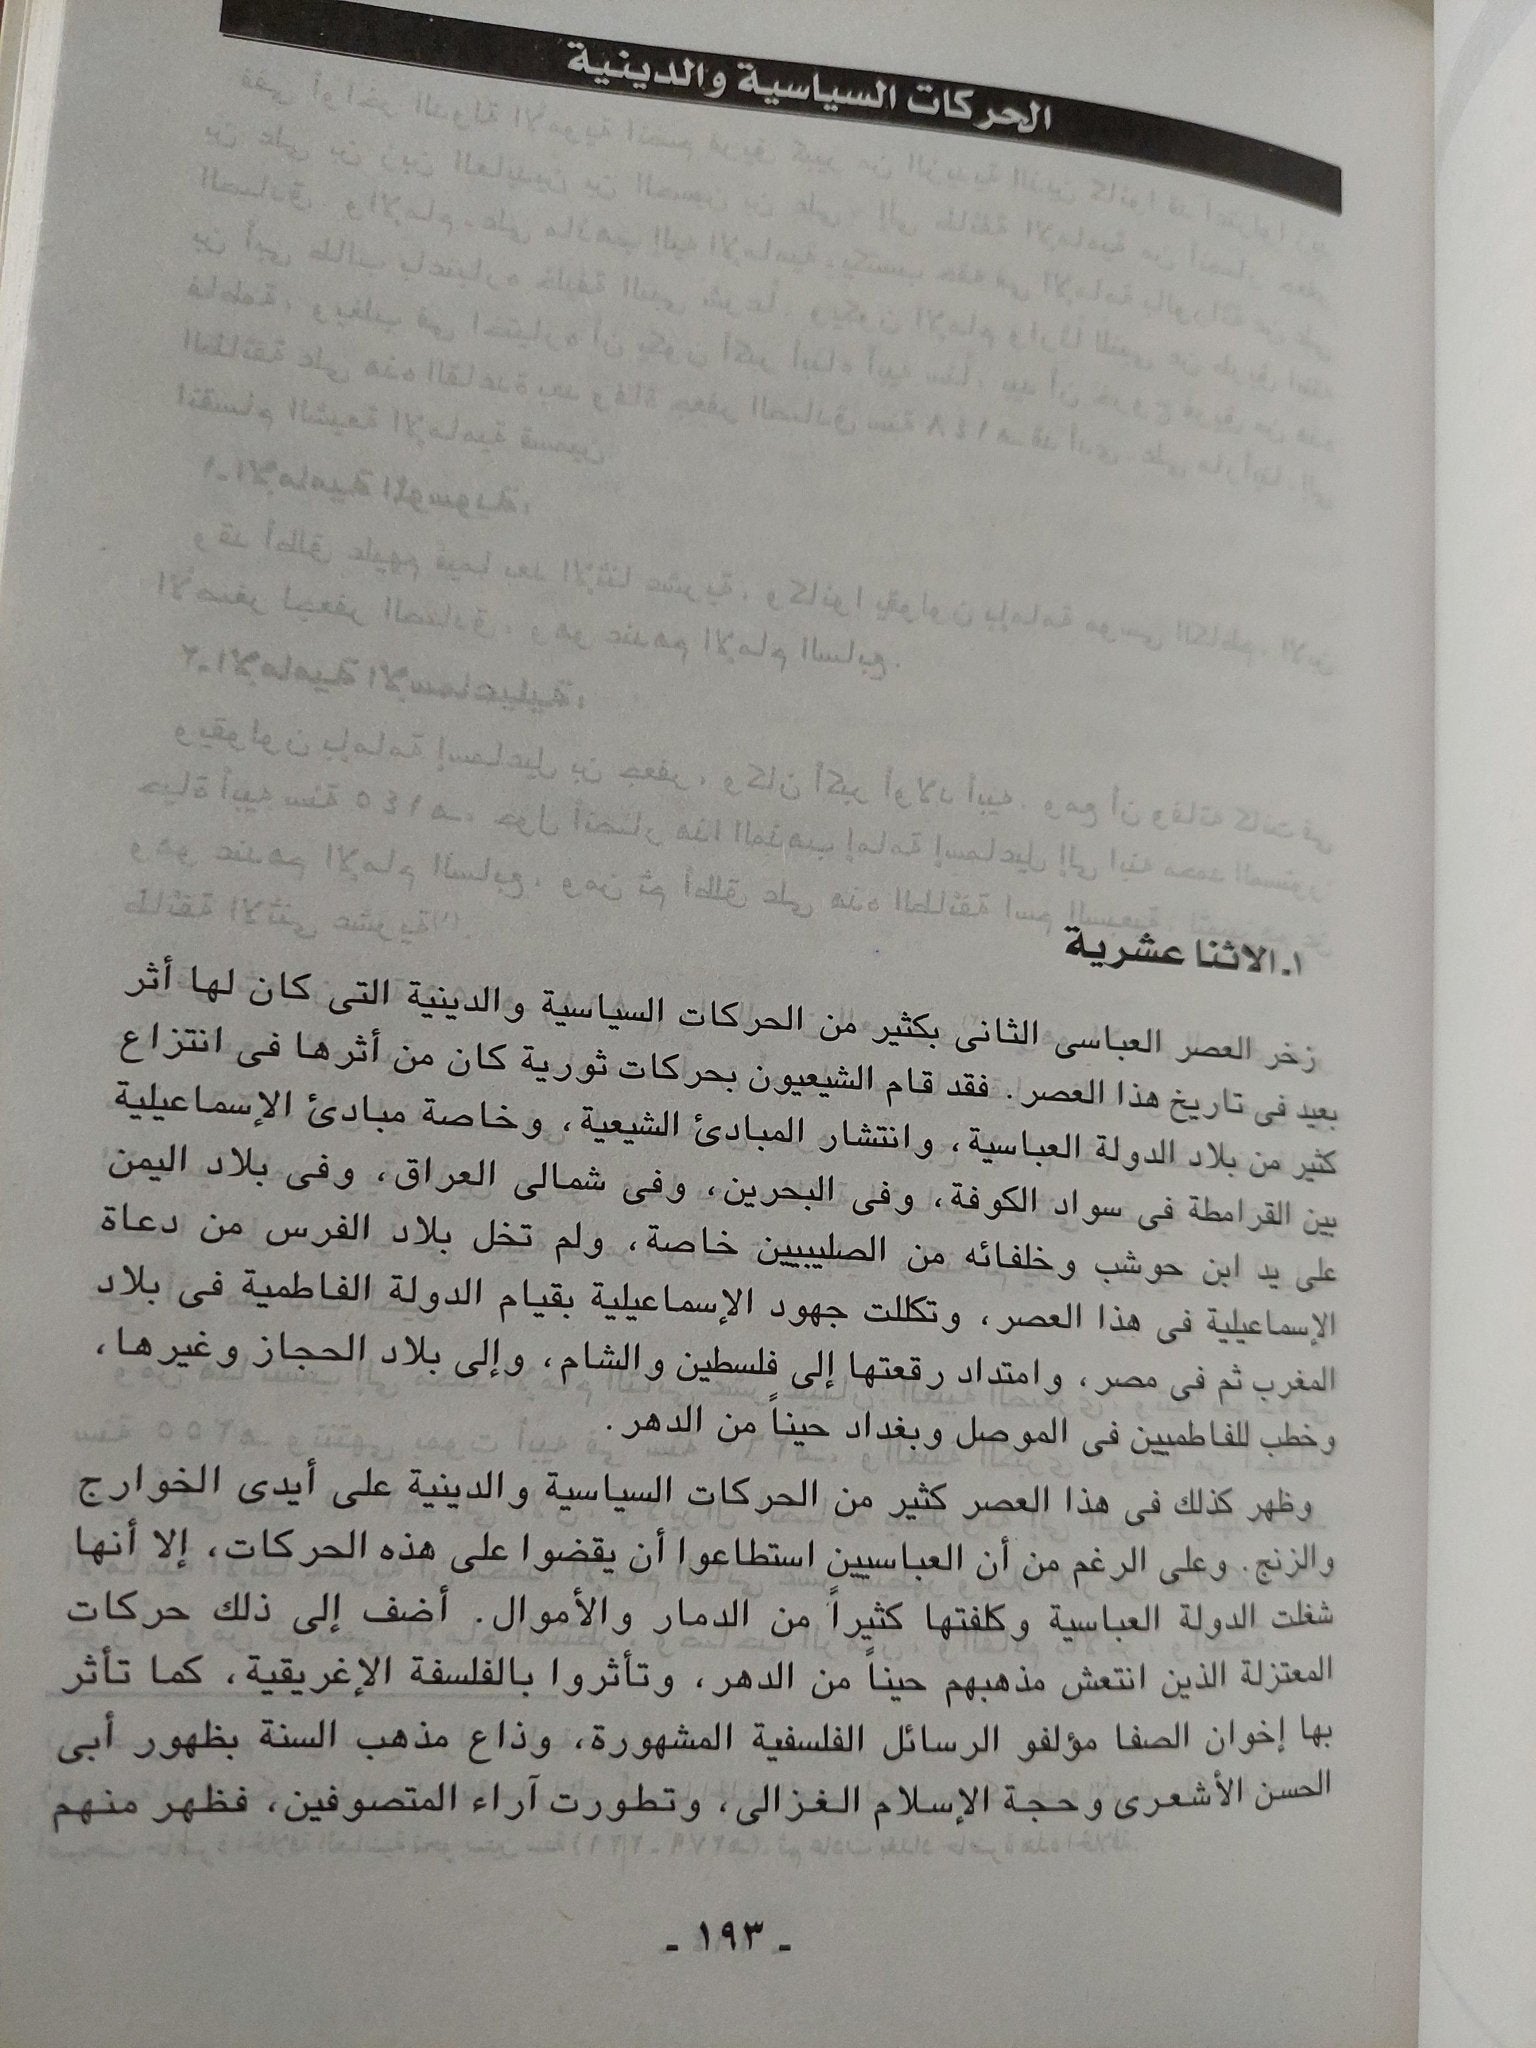 الحركات السياسية والدينية
١ـ الاثنا عشرية
زخر العصر العباسى الثانى بكثير من الحركات السياسية والدينية التى كان لها أثر
بعيد فى تاريخ هذا العصر. فقد قام الشيعيون بحركات ثورية كان من أثرها فى انتزاع
كثير من بلاد الدولة العباسية، وانتشار المبادئ الشيعية، وخاصة مبادئ الإسماعيلية
بين القرامطة فى سواد الكوفة، وفى البحرين، وفى شمالى العراق، وفى بلاد اليمن
على يد ابن حوشب وخلفائه من الصليبيين خاصة، ولم تخل بلاد الفرس من دعاة
الإسماعيلية فى هذا العصر، وتكللت جهود الإسماعيلية بقيام الدولة الفاطمية فى بلاد
المغرب ثم فى مصر، وامتداد رقعتها إلى فلسطين والشام، وإلى بلاد الحجاز وغيرها،
وخطب للفاطميين فى الموصل وبغداد حيناً من الدهر.
وظهر كذلك فى هذا العصر كثير من الحركات السياسية والدينية على أيدى الخوارج
والزنج. وعلى الرغم من أن العباسيين استطاعوا أن يقضوا على هذه الحركات، إلا أنها
شغلت الدولة العباسية وكلفتها كثيراً من الدمار والأموال. أضف إلى ذلك حركات
المعتزلة الذين انتعش مذهبهم حيناً من الدهر، وتأثروا بالفلسفة الإغريقية، كما تأثر
بها إخوان الصفا مؤلفو الرسائل الفلسفية المشهورة، وذاع مذهب السنة بظهور أبى
الحسن الأشعرى وحجة الإسلام الغزالى، وتطورت آراء المتصوفين، فظهر منهم
ـ ١٩٣ ـ